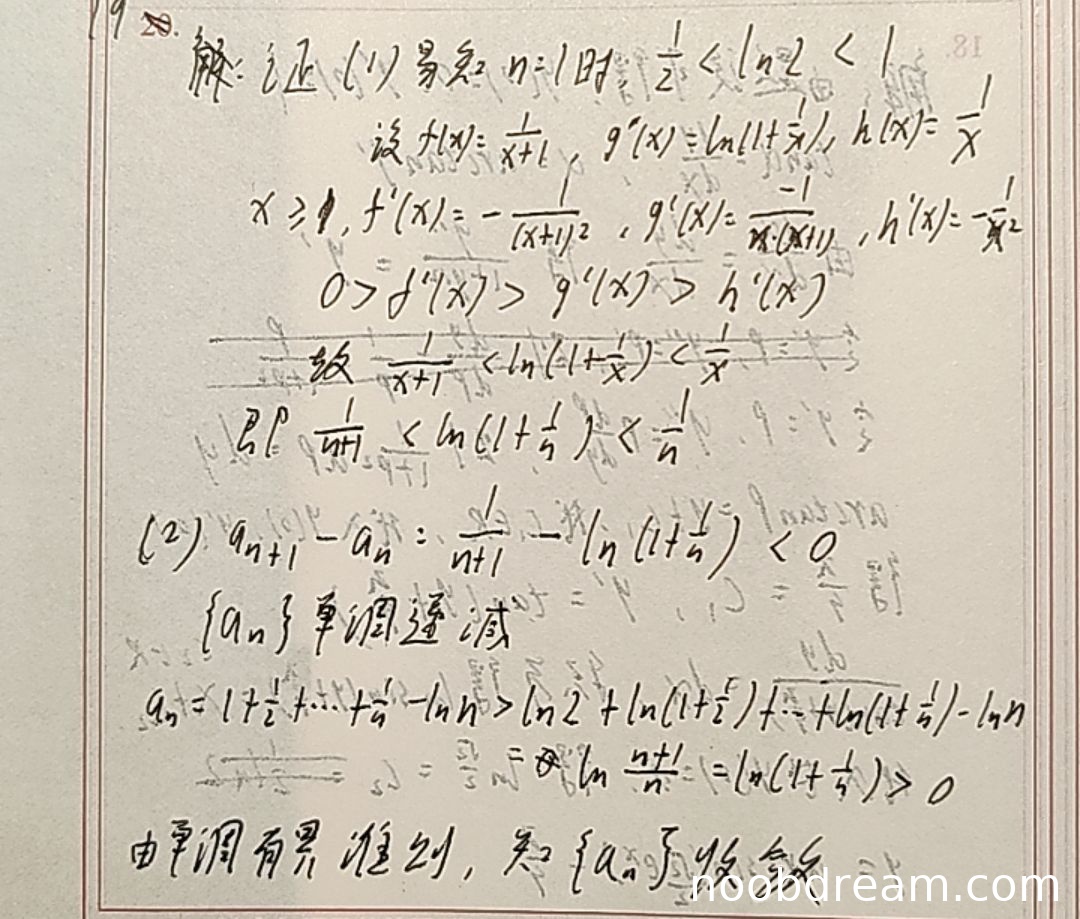 19 20.
解: 证 (1) 易知 n=1时, 1/2 < ln2 < 1
设 f(x)= 1/(x+1), g(x)=ln(1+1/x), h(x)= 1/x
x ≥ 1, f'(x)= - 1/(x+1)², g'(x)= -1/(x·(x+1)), h'(x)= -1/x²
0 > f'(x) > g'(x) > h'(x)
故 1/(x+1) < ln(1+1/x) < 1/x
即 1/(n+1) < ln(1+1/n) < 1/n
(2) a_{n+1} - a_n = 1/(n+1) - ln(1+1/n) < 0
{a_n} 单调递减
a_n = 1+1/2+⋯+1/n - ln n > ln2 + ln(1+1/2)+⋯+ln(1+1/n) - ln n
= ln (n+1)/n = ln(1+1/n) > 0
由单调有界准则, 知{a_n}收敛
noobdream.com